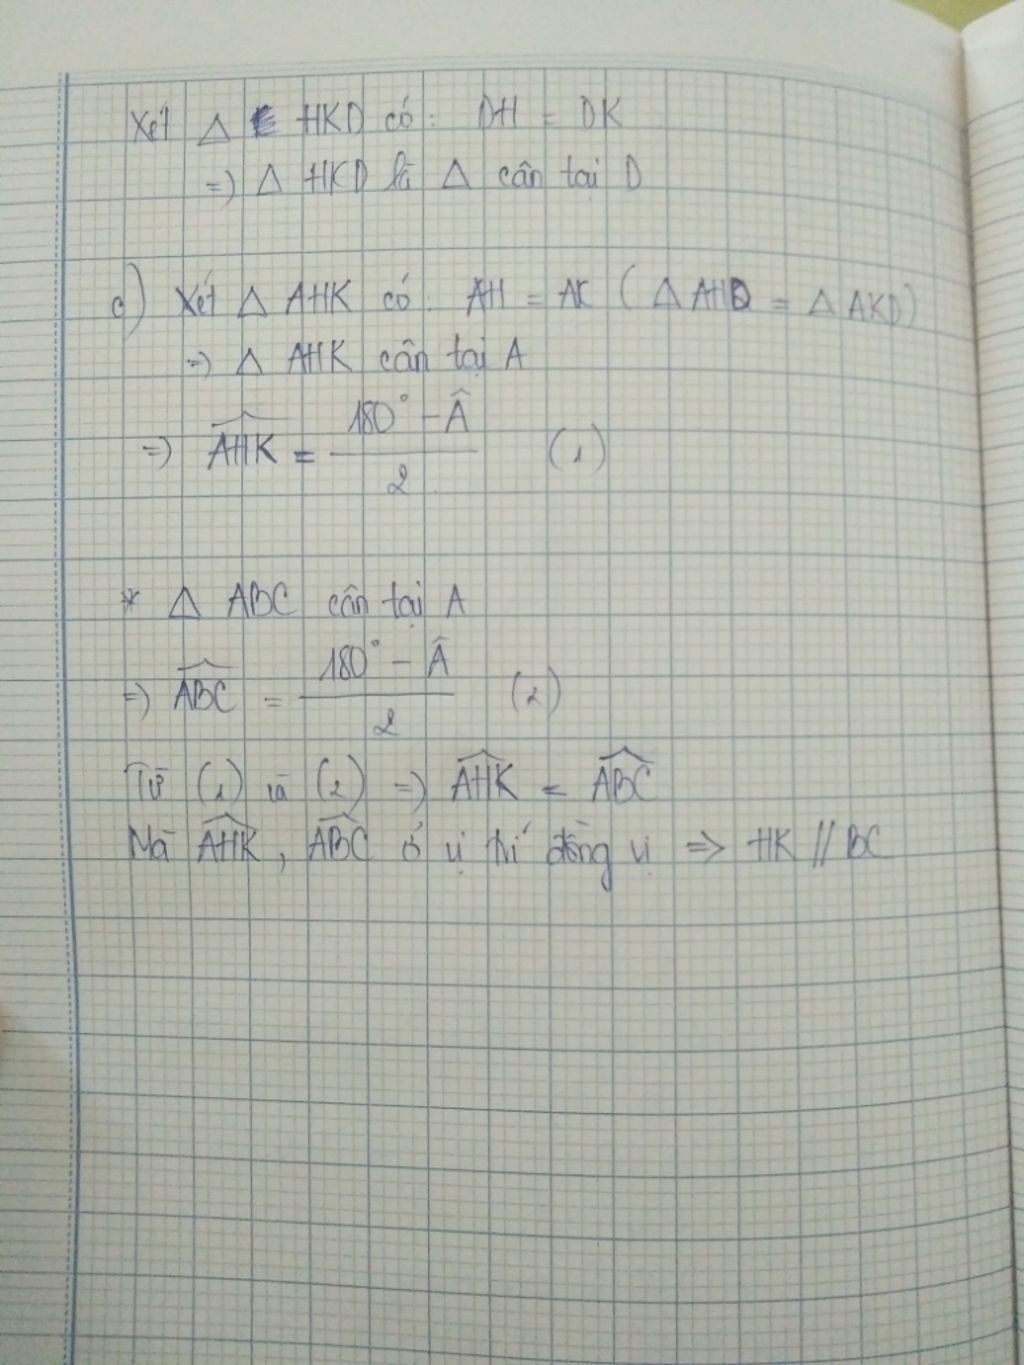 Xét △ HKD có: DH = DK
=) △ HKD là △ cân tại D
c) Xét △ AHK có. AH = AK ( △ AHD = △ AKD)
=) △ AHK cân tại A
=) \widehat{AHK} = \frac{180° - Â}{2} (1)
* △ ABC cân tại A
=) \widehat{ABC} = \frac{180° - Â}{2} (2)
Từ (1) và (2) =) \widehat{AHK} = \widehat{ABC}
Mà \widehat{AHK}, \widehat{ABC} ở vị trí đồng vị => HK // BC